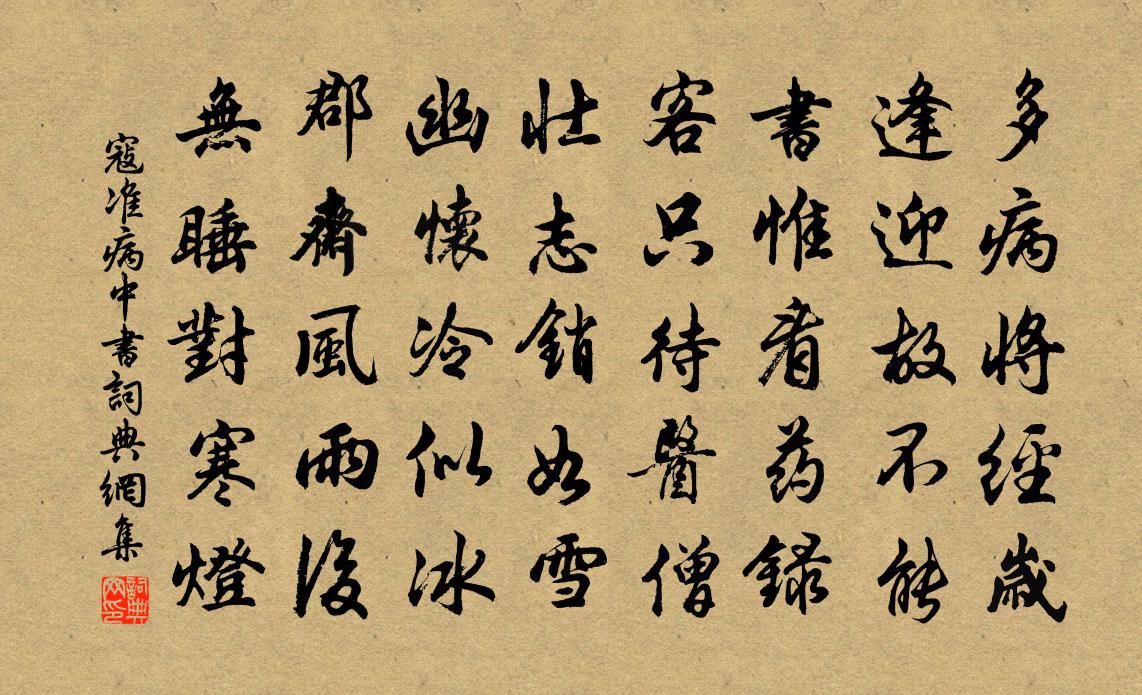 多病將經歲
逢迎故不能
書惟看药錄
客只待醫僧
壮志銷如雪
幽懷冷似冰
郡齋風雨後
無睡對寒燈
寇准病中書詞典網集
詞典网印